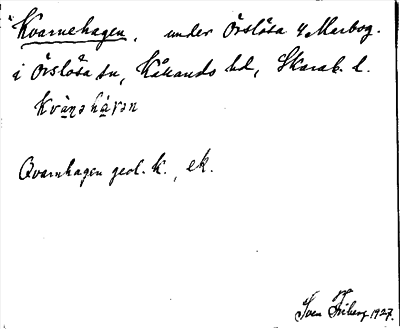 Kvarnehagen, under Örslösa 4 Marbog.
i Örslösa sn, Kållands hd, Skarab. l.
kvàṇəhàɣən
Qvarnhagen geol. k., ek.
Sven Friberg 1927.